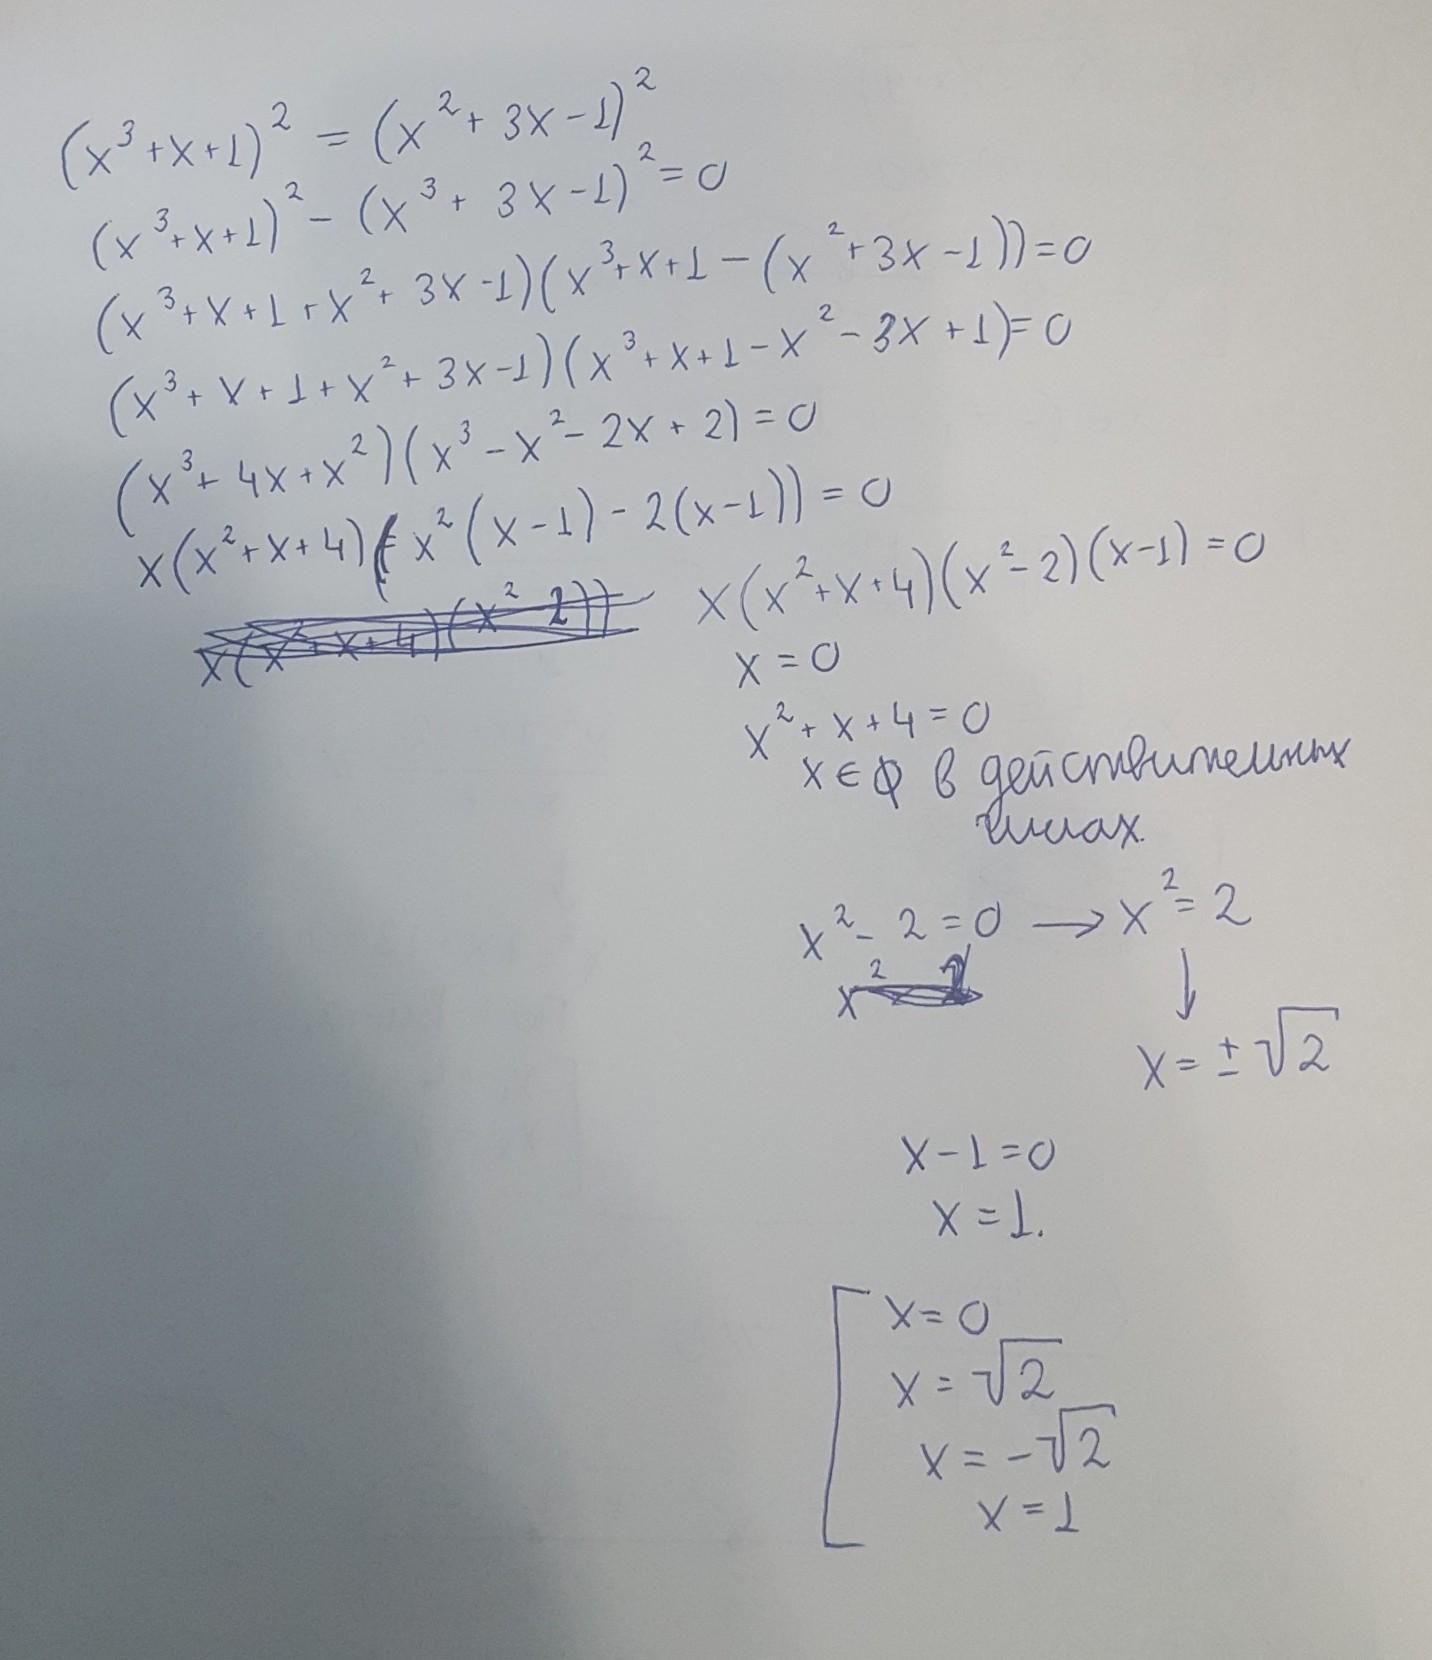 (x³+x+1)² = (x²+3x-1)²
(x³+x+1)² - (x³+3x-1)² = 0
(x³+x+1+x²+3x-1)(x³+x+1-(x²+3x-1))=0
(x³+x+1+x²+3x-1)(x³+x+1-x²-3x+1)=0
(x³+4x+x²)(x³-x²-2x+2)=0
x(x²+x+4)(x²(x-1)-2(x-1))=0
x(x²+x+4)(x²-2)(x-1)=0
x=0
x²+x+4=0
x∈ϕ в действительных
числах.
x²-2=0 → x²=2
↓
x=±√2
x-1=0
x=1.
x=0
x=√2
x=-√2
x=1